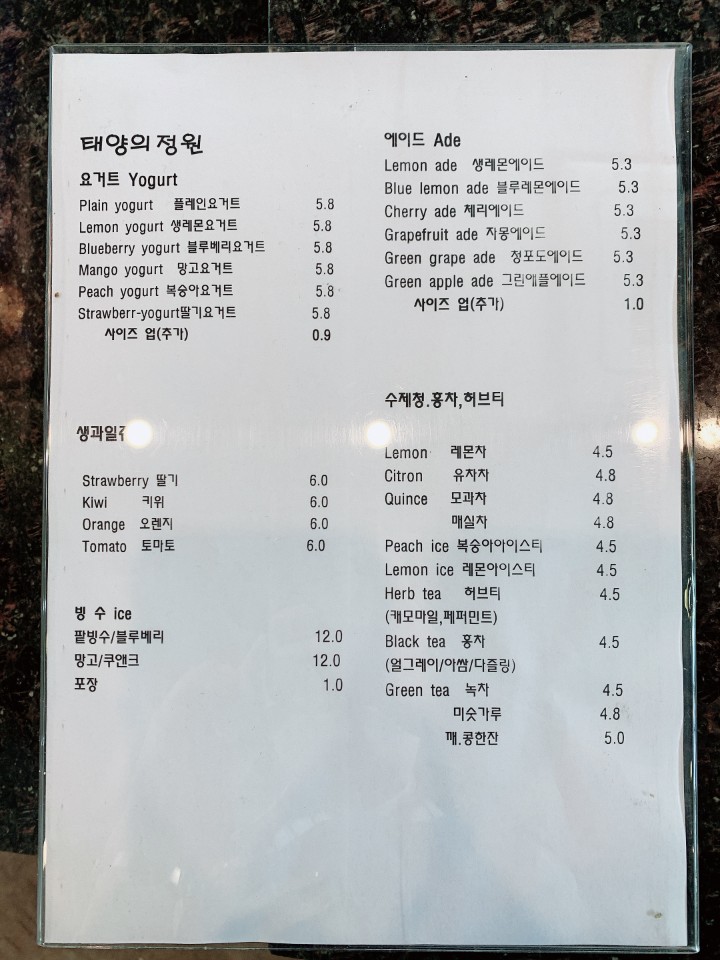 태양의정원
요거트 Yogurt
Plain yogurt 플레인요거트 5.8
Lemon yogurt 생레몬요거트 5.8
Blueberry yogurt 블루베리요거트 5.8
Mango yogurt 망고요거트 5.8
Peach yogurt 복숭아요거트 5.8
Strawberr-yogurt딸기요거트 5.8
사이즈 업(추가) 0.9
생과일
Strawberry 딸기 6.0
Kiwi 키위 6.0
Orange 오렌지 6.0
Tomato 토마토 6.0
빙 수 ice
팥빙수/블루베리 12.0
망고/쿠앤크 12.0
포장 1.0
에이드 Ade
Lemon ade 생레몬에이드 5.3
Blue lemon ade 블루레몬에이드 5.3
Cherry ade 체리에이드 5.3
Grapefruit ade 자몽에이드 5.3
Green grape ade 청포도에이드 5.3
Green apple ade 그린애플에이드 5.3
사이즈 업(추가) 1.0
수제청.홍차,허브티
Lemon 레몬차 4.5
Citron 유자차 4.8
Quince 모과차 4.8
매실차 4.8
Peach ice 복숭아아이스티 4.5
Lemon ice 레몬아이스티 4.5
Herb tea 허브티 4.5
(캐모마일,페퍼민트)
Black tea 홍차 4.5
(얼그레이/아쌈/다즐링)
Green tea 녹차 4.5
미숫가루 4.8
깨.콩한잔 5.0